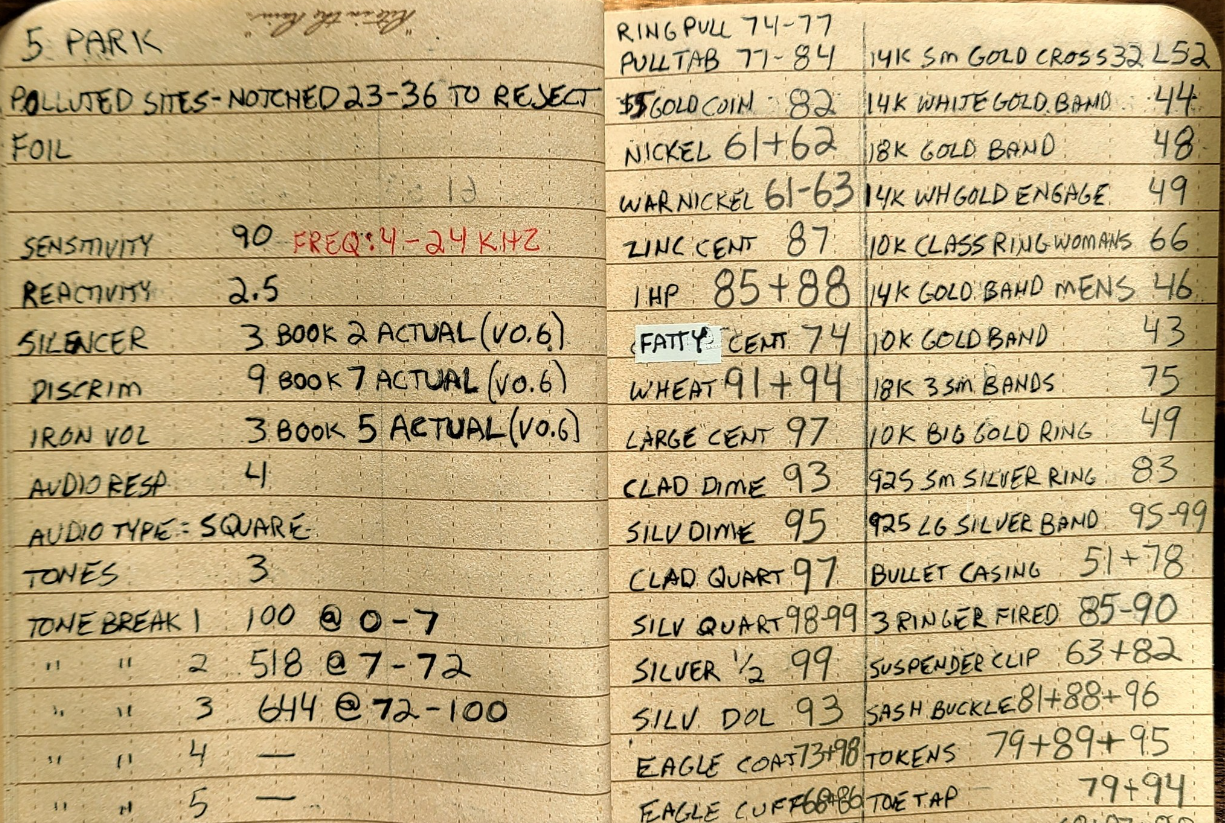 "Rite in the Rain"
5 PARK
POLLUTED SITES - NOTCHED 23-36 TO REJECT
FOIL
SENSITIVITY 90 FREQ: 4-24 KHZ
REACTIVITY 2.5
SILENCER 3 BOOK 2 ACTUAL (V0.6)
DISCRIM 9 BOOK 7 ACTUAL (V0.6)
IRON VOL 3 BOOK 5 ACTUAL (V0.6)
AUDIO RESP 4
AUDIO TYPE = SQUARE
TONES 3
TONE BREAK 1 100 @ 0-7
" " 2 518 @ 7-72
" " 3 644 @ 72-100
" " 4 —
" " 5 —
RING PULL 74-77
PULL TAB 77-84
$5 GOLD COIN 82
NICKEL 61+62
WAR NICKEL 61-63
ZINC CENT 87
IHP 85+88
FATTY CENT 74
WHEAT 91+94
LARGE CENT 97
CLAD DIME 93
SILV DIME 95
CLAD QUART 97
SILV QUART 98-99
SILVER 1/2 99
SILV. DOL 93
EAGLE COAT 73+98
EAGLE CUFF 68+86
14K SM GOLD CROSS 32 L52
14K WHITE GOLD BAND 44
18K GOLD BAND 48
14K WH GOLD ENGAGE 49
10K CLASS RING WOMANS 66
14K GOLD BAND MENS 46
10K GOLD BAND 43
18K 3 SM BANDS 75
10K BIG GOLD RING 49
925 SM SILVER RING 83
925 LG SILVER BAND 95-99
BULLET CASING 51+78
3 RINGER FIRED 85-90
SUSPENDER CLIP 63+82
SASH BUCKLE 81+88+96
TOKENS 79+89+95
TOE TAP 79+94